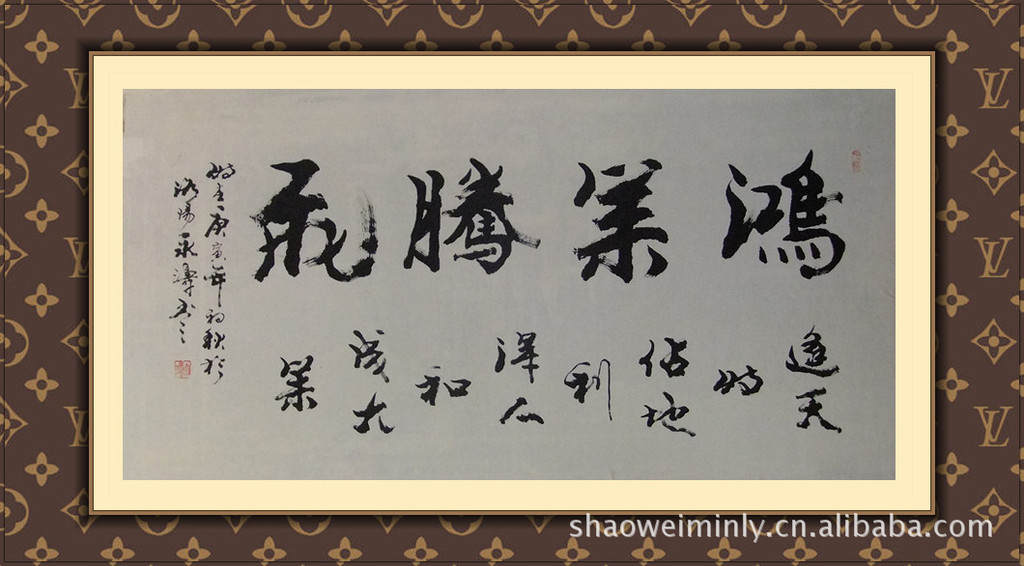 鴻業騰飛
逢天時
佔地利
得人和
成大業
時在庚寅年初秋於
洛陽永濤書之
shaoweiminly.cn.alibaba.com